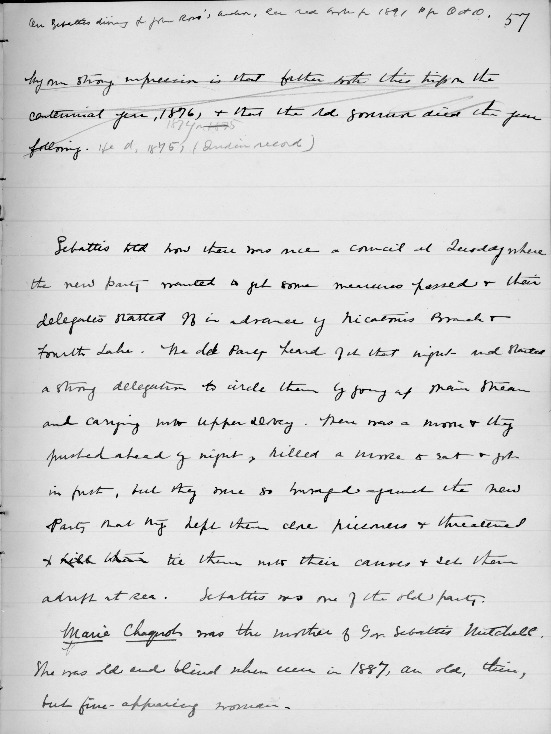 57
My own strong impression is that father took this trip on the
centennial year, 1876, & that the old governor died the year
following. He d. 1875, (Indian record)
1874 or 1875
Sebattis told how there was once a council at where
the new party wanted to get some measures passed & their
delegates started off in advance by Nicatous Branch &
Fourth Lake. The old Party heard of it that night and started
a strong delegation to circle them by going up Main Stream
and carrying into Upper . There was a moon & they
pushed ahead by night, killed a moose to eat & got
in first, but they were so enraged against the new
Party that they kept them close prisoners & threatened
to kill them tie them into their canoes & set them
adrift at sea. Sebattis was one of the old party.
Marie was the mother of Gov. Sebattis Mitchell.
She was old and blind when seen in 1887, an old, thin,
but fine-appearing woman.